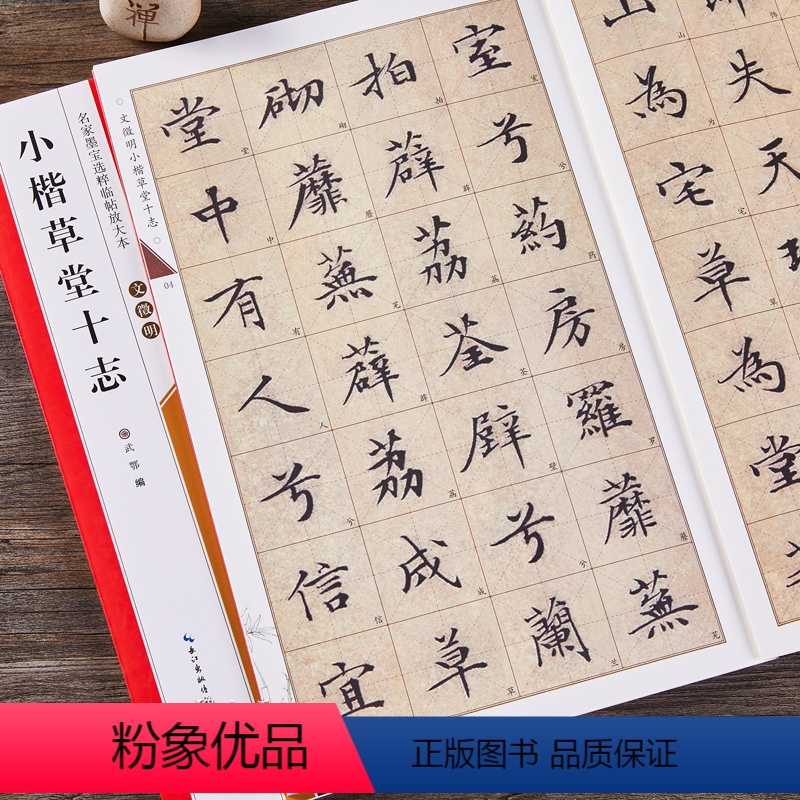 禅
小楷草堂十志
名家墨宝选粹临帖放大本
文徵明
武鄂 编
长江出版传媒
文徵明小楷草堂十志
04
失天
山為宅草為堂
室兮葯房羅蘼蕪
拍薜荔荃壁兮蘭
砌蘼蕪薜荔成草
堂中有人兮信宜
粉象优品
正版图书 品质保证